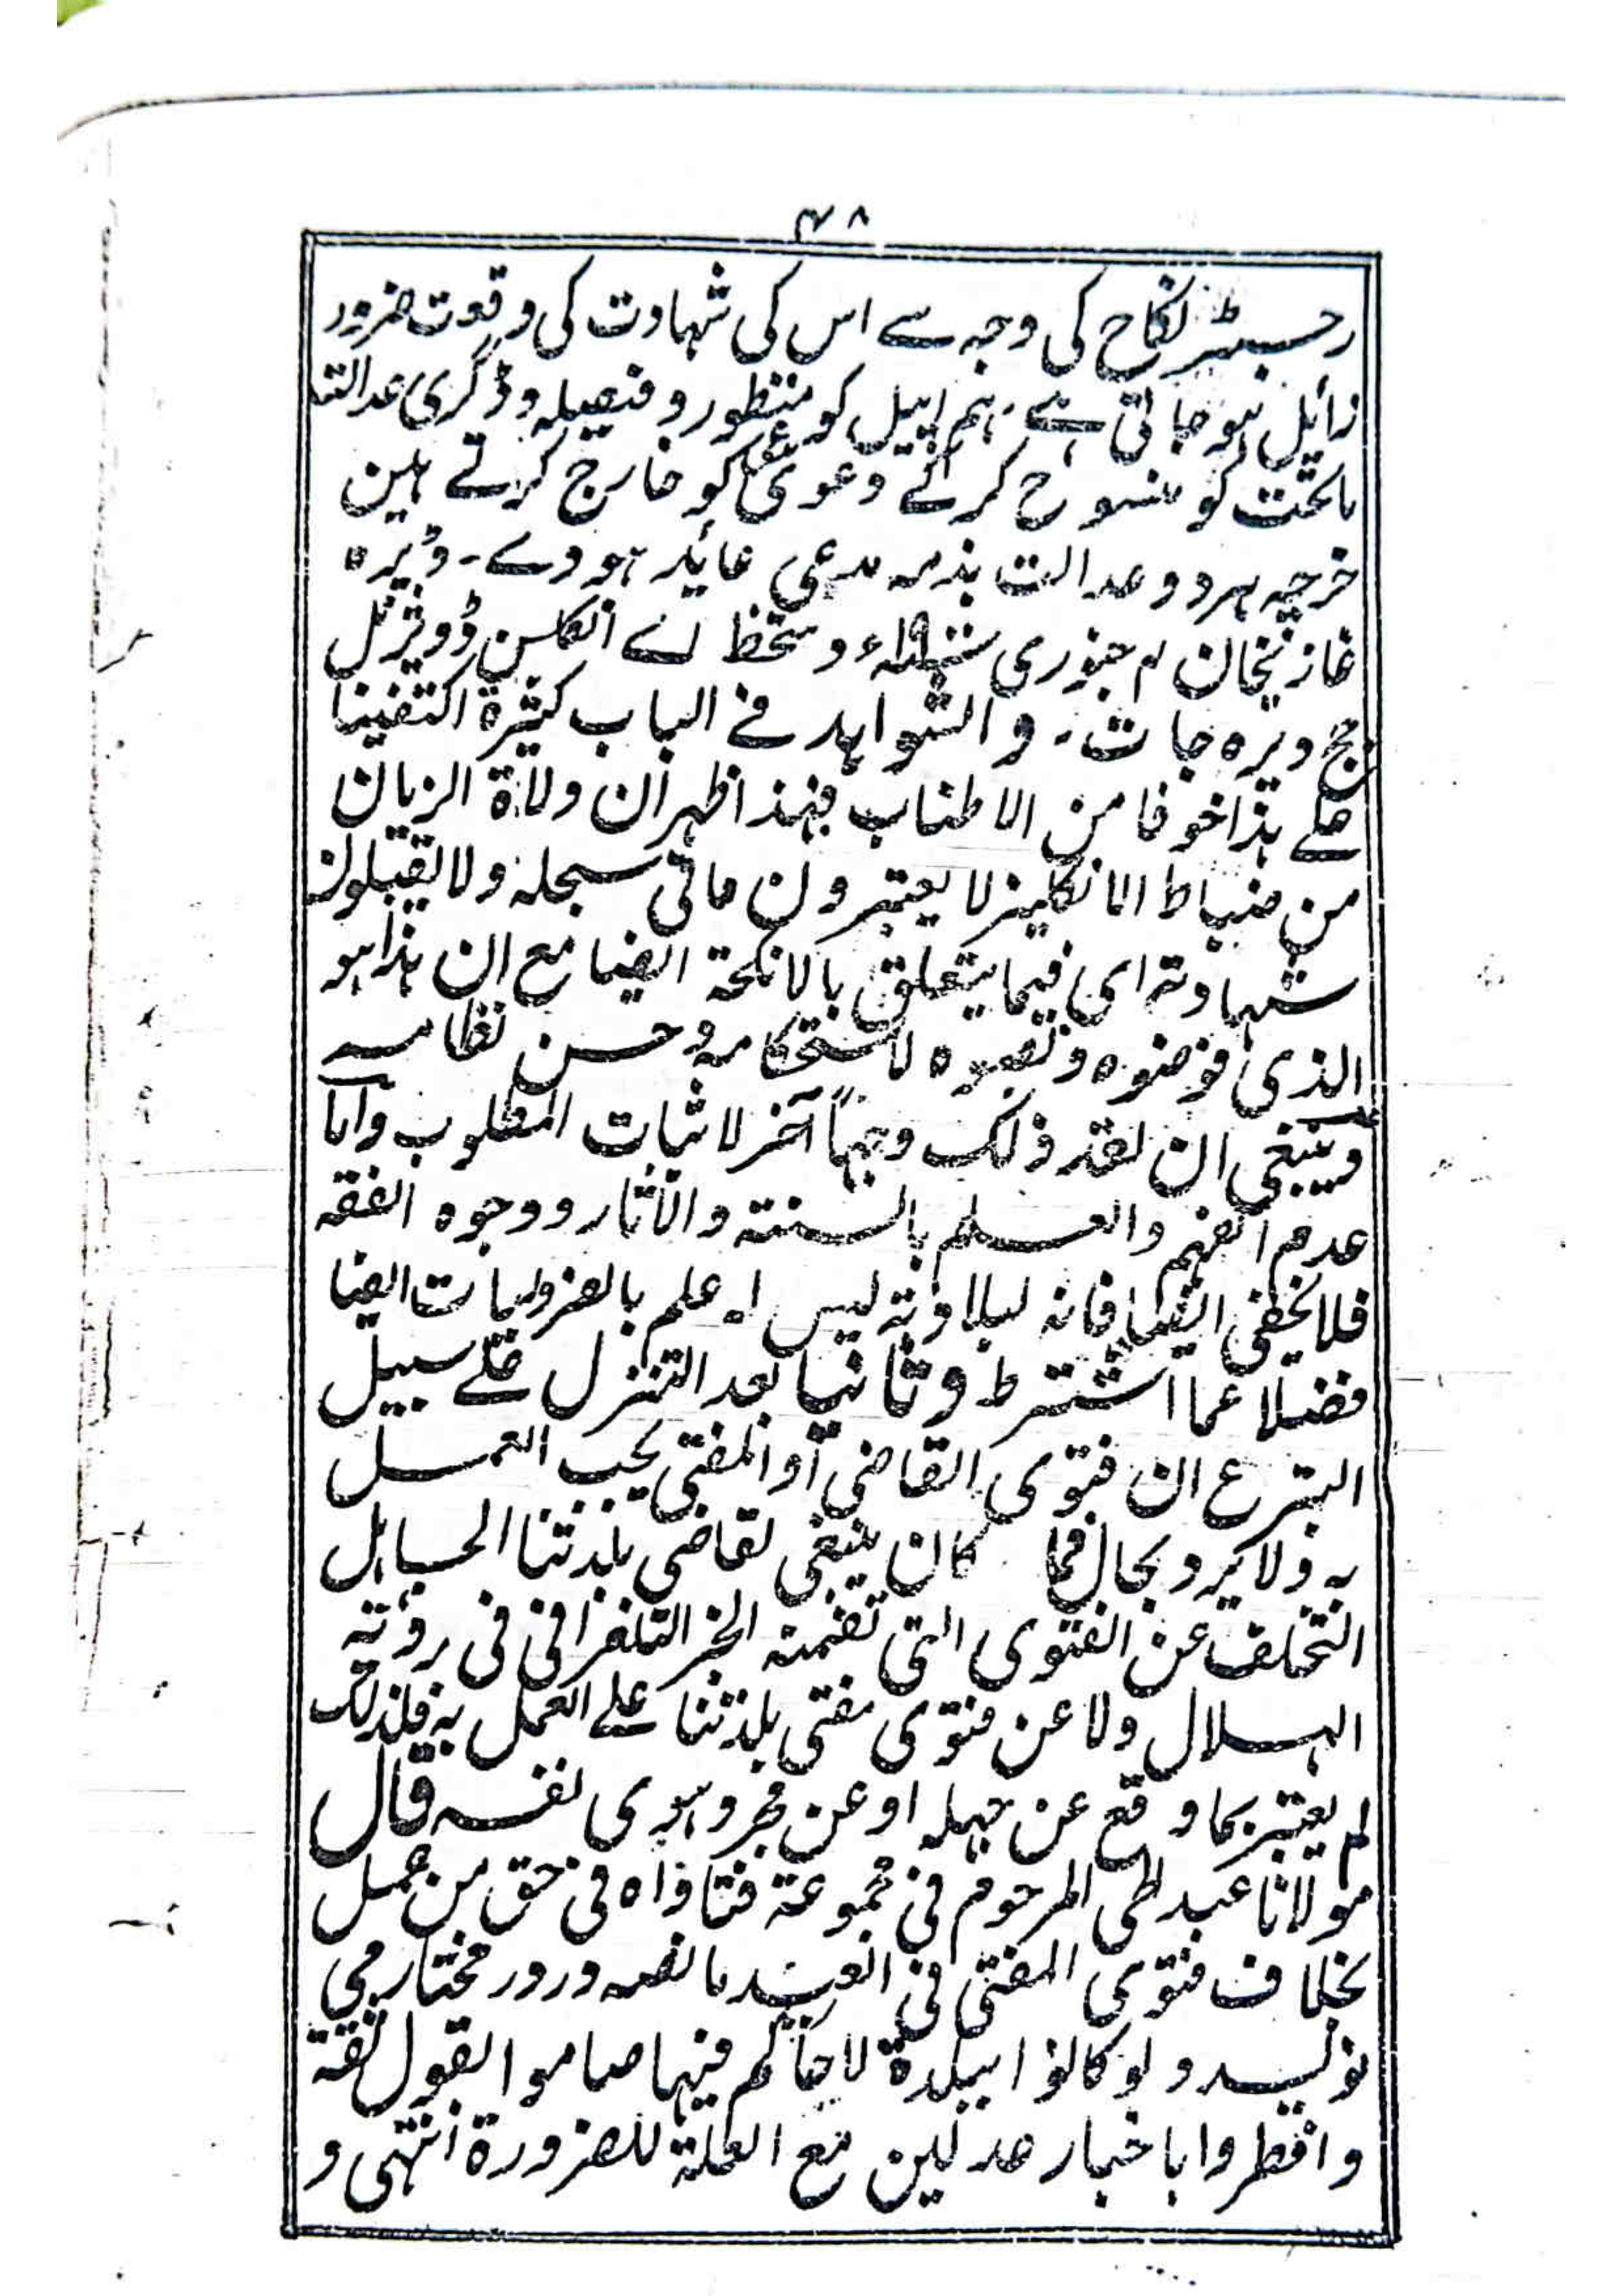 ۴۸
رجسٹر نکاح کی وجہ سے اس کی شہادت کی وقوت ضرور
زائیل ہوجاتی ہے۔ ہم اپیل کو منظور و فیصلہ و ڈگری عدالت
ماتحت کو منسوخ کرکے دعوی کو خارج کرتے ہین
خرچہ ہردو عدالت بذمہ مدعی عاید ہووے۔ ڈیرہ
غازیخان ۴ جنوری دستخط اے انکاسن ڈویژنل
جج ڈیرہ جات۔ والشواہد فے الباب کثیرة اکتفینا
علے ہذا خوفا من الاطناب فبهذا ظہر ان ولاة الزمان
من ضباط الانکلیز لا یعتبرون مافی سجله ولا یقبلون
شهادته ای فیما یتعلق بالانکحة ایضا مع ان ہذا ہو
الذی فوضوه ونصبوه لاستحکامه وحسن نظامه
وینبغی ان نعد ذلک وجہاً آخر لاثبات المطلوب واما
عدم الفهم والعلم بالسنته والآثار ووجوه الفقه
فلا یخفی ایضا فانه لبلادته لیس له علم بالضروریات ایضا
فضلا عما اشترط وثانیا بعد التنزل علے سبیل
التبرع ان فتوی القاضی أو المفتی یجب العمل
به ولا یرد بحال فما کان ینبغی لقاضی بلدتنا الجاہل
التخلف عن الفتوی التی تضمنه الخبر التلغرافی فی رؤیته
الہلال ولا عن فتوی مفتی بلدتنا علے العمل به فلذلک
لم یعتبر بما وقع عن جہله او عن فجر وہوی نفسه قال
مولانا عبدالحی المرحوم فی مجموعة فتاواه فی حق من عمل
بخلاف فتوی المفتی فی العید ما نصه ودر در مختار می
نویسد ولو کانوا ببلدة لاحاکم فیہا صاموا بقول ثقة
وافطروا باخبار عدلین مع العلة للضرورة انتہی و